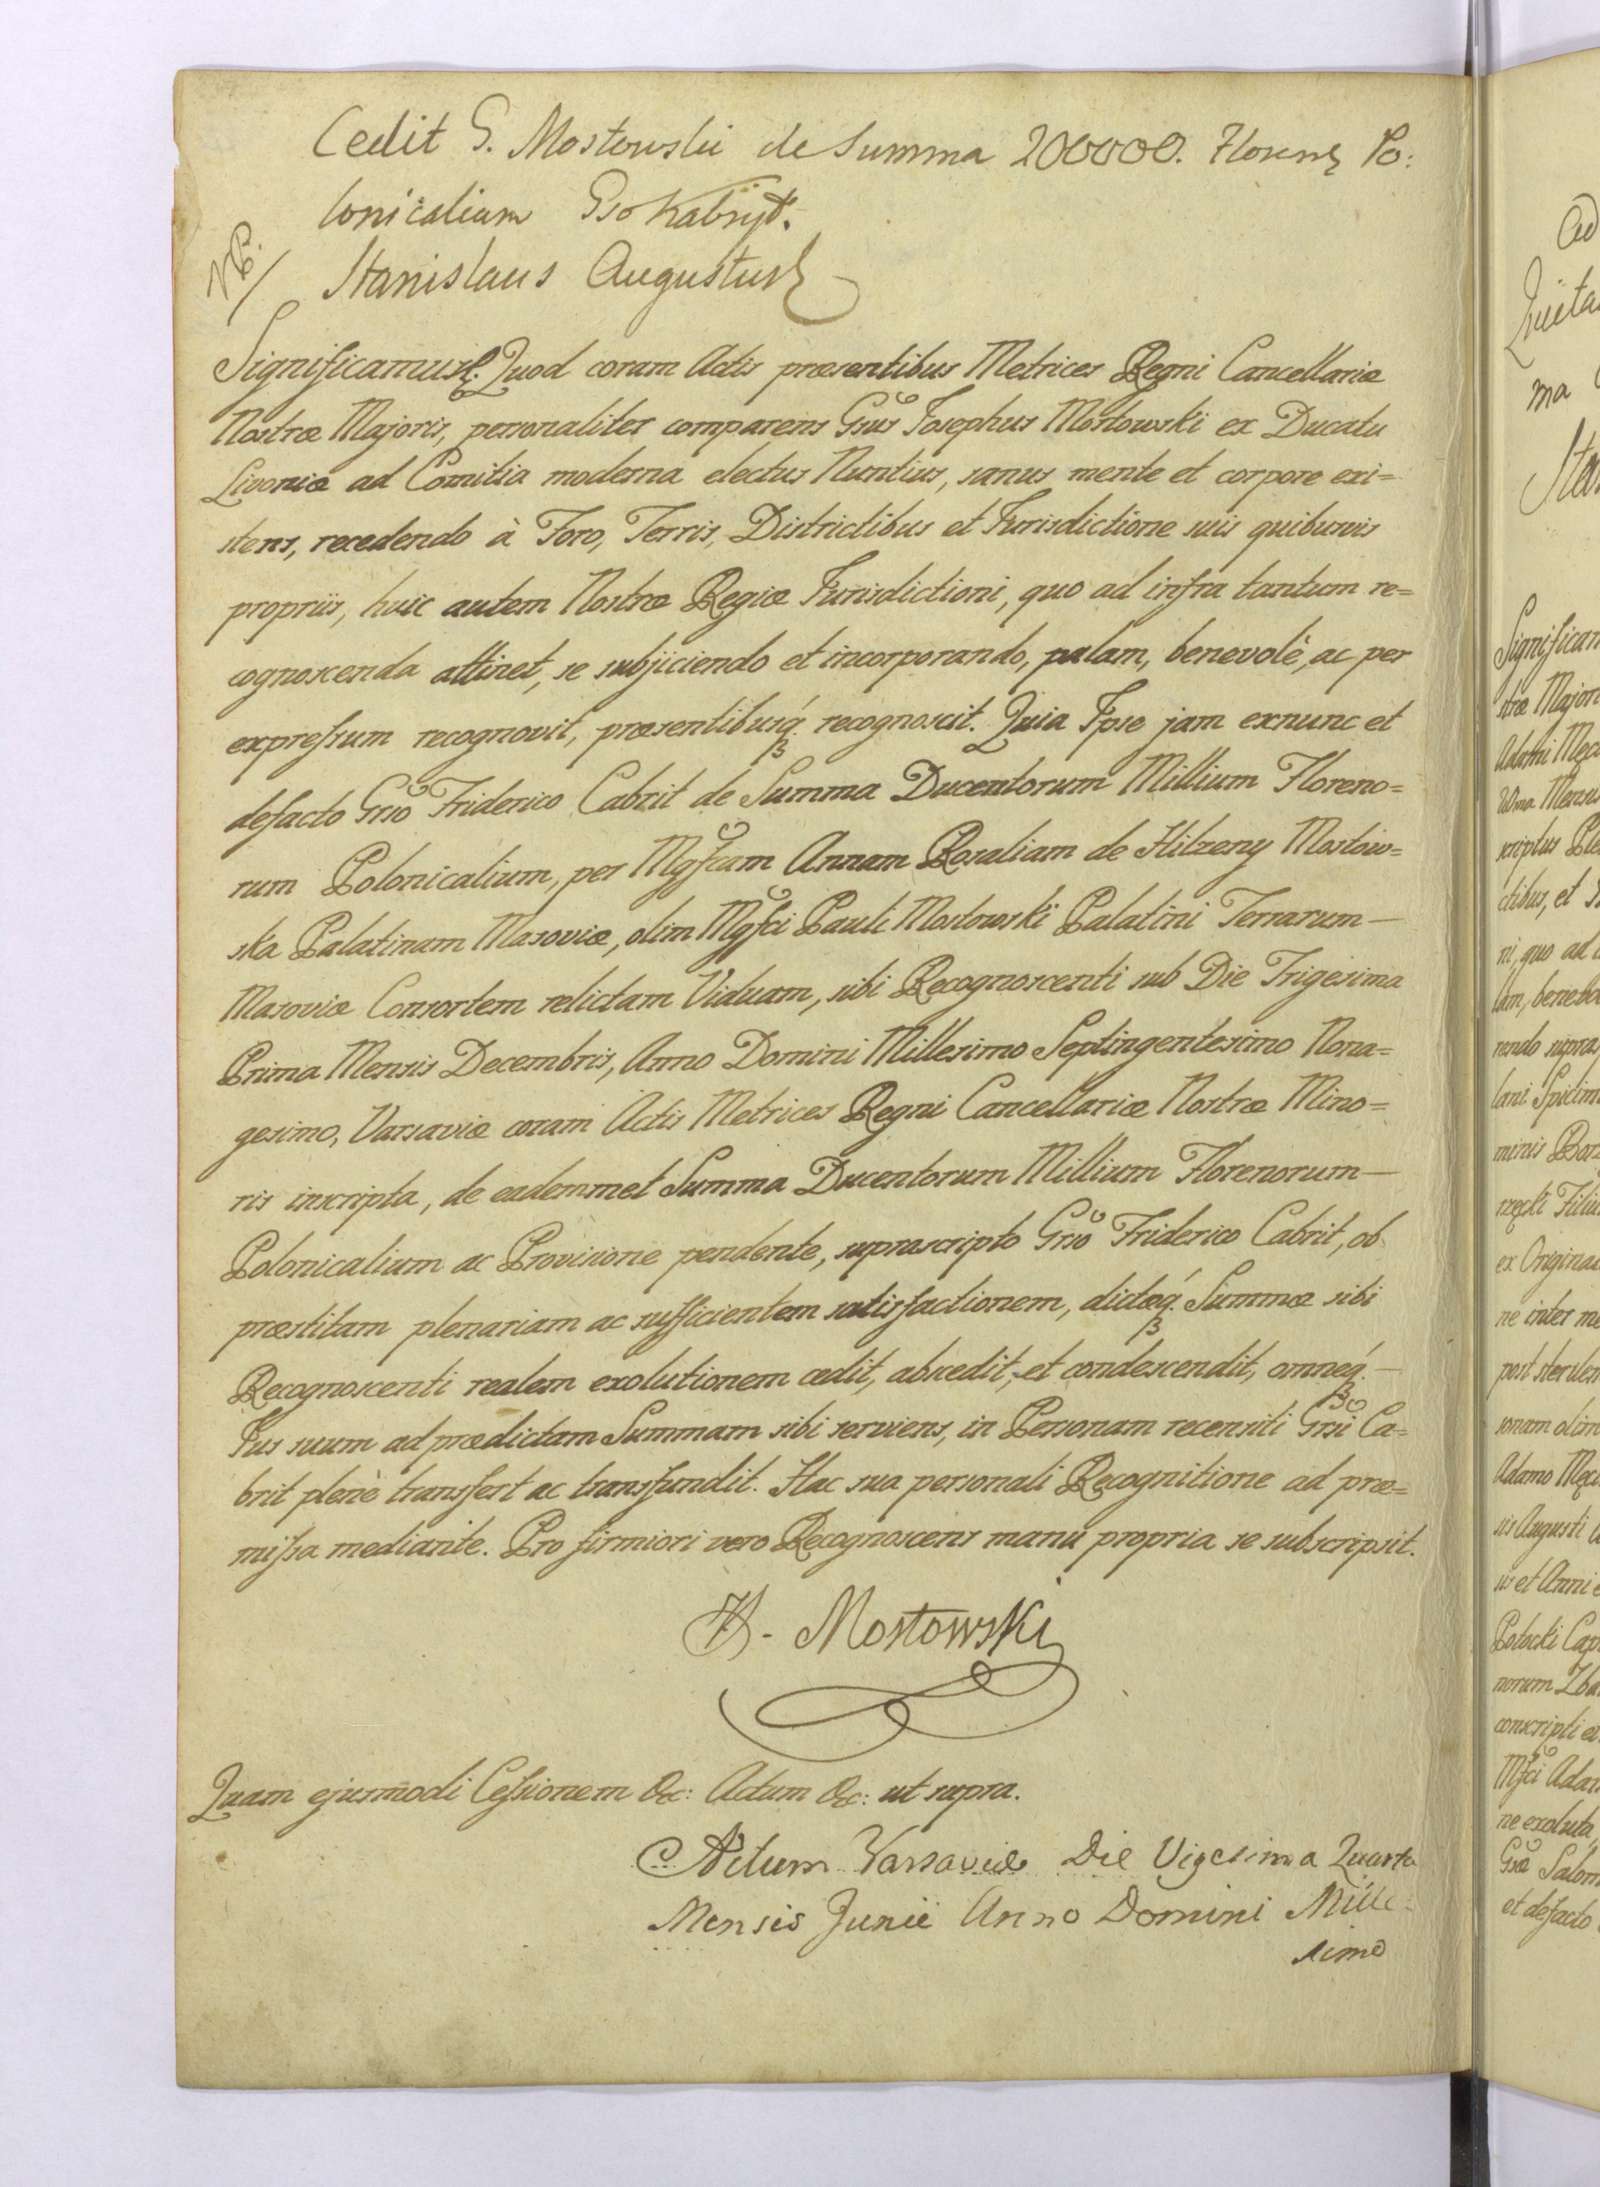 Cedit G. Mostowski de Summa 200000. Floreny Po:
lonicalium Gso Kabryt.
Stanislaus Augustus
Significamus &. Quod coram Actis præsentibus Metrices Regni Cancellariæ
Nostræ Majoris, personaliter comparens Gsus Josephus Mostowski ex Ducatu
Livoniæ ad Comitia moderna electus Nuntius, sanus mente et corpore exi=
stens, recedendo à Foro, Terris, Districtibus et Jurisdictione suis quibusvis
propriis, huic autem Nostræ Regiæ Jurisdictioni, quo ad infra tantum re=
cognoscenda attinet, se subjiciendo et incorporando, palam, benevolè, ac per
expressum recognovit, præsentibusq́ recognoscit. Quia Ipse jam exnunc et
defacto Grso Friderico Cabrit de Summa Ducentorum Millium Floreno=
rum Polonicalium, per Mgfcam Annam Rosaliam de Hilzeny Mostow=
ska Palatinam Masoviæ, olim Mgfci Pauli Mostowski Palatini Terrarum—
Masoviæ Consortem relictam Viduam, sibi Recognoscenti sub Die Trigesima
Prima Mensis Decembris, Anno Domini Millesimo Septingentesimo Nona=
gesimo, Varsaviæ coram Actis Metrices Regni Cancellariæ Nostræ Mino=
ris inscripta, de eademmet Summa Ducentorum Millium Florenorum—
Polonicalium ac Provisione pendente, suprascripto Grso Friderico Cabrit, ob
præstitam plenariam ac sufficientem satisfactionem, dictæq́ Summæ sibi
Recognoscenti realem exolutionem cedit, abscedit, et condescendit, omneq́.—
Jus suum ad prædictam Summam sibi serviens, in Personam recensiti Grsi Ca=
brit plenè transfert ac transfundit. Hac sua personali Recognitione ad præ=
missa mediante. Pro firmiori vero Recognoscens manu propria se subscripsit.
J. Mostowski
Quam ejusmodi Cessionem &c: Actum &c: ut supra.
Actum Varsaviæ Die Vigesima Quarta
Mensis Junii Anno Domini Mille-
simo